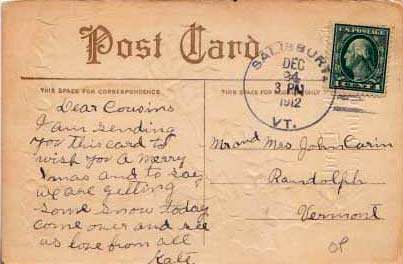 Post Card
THIS SPACE FOR CORRESPONDENCE
Dear Cousins
I am sending
you this card to
wish you a merry
Xmas and to say
we are getting
some snow today
come over and see
us love from all
Kate
SALISBURY
DEC
24
3 PM
1912
VT.
U.S. POSTAGE
1 CENT 1
Mr and Mrs John
Randolph
Vermont